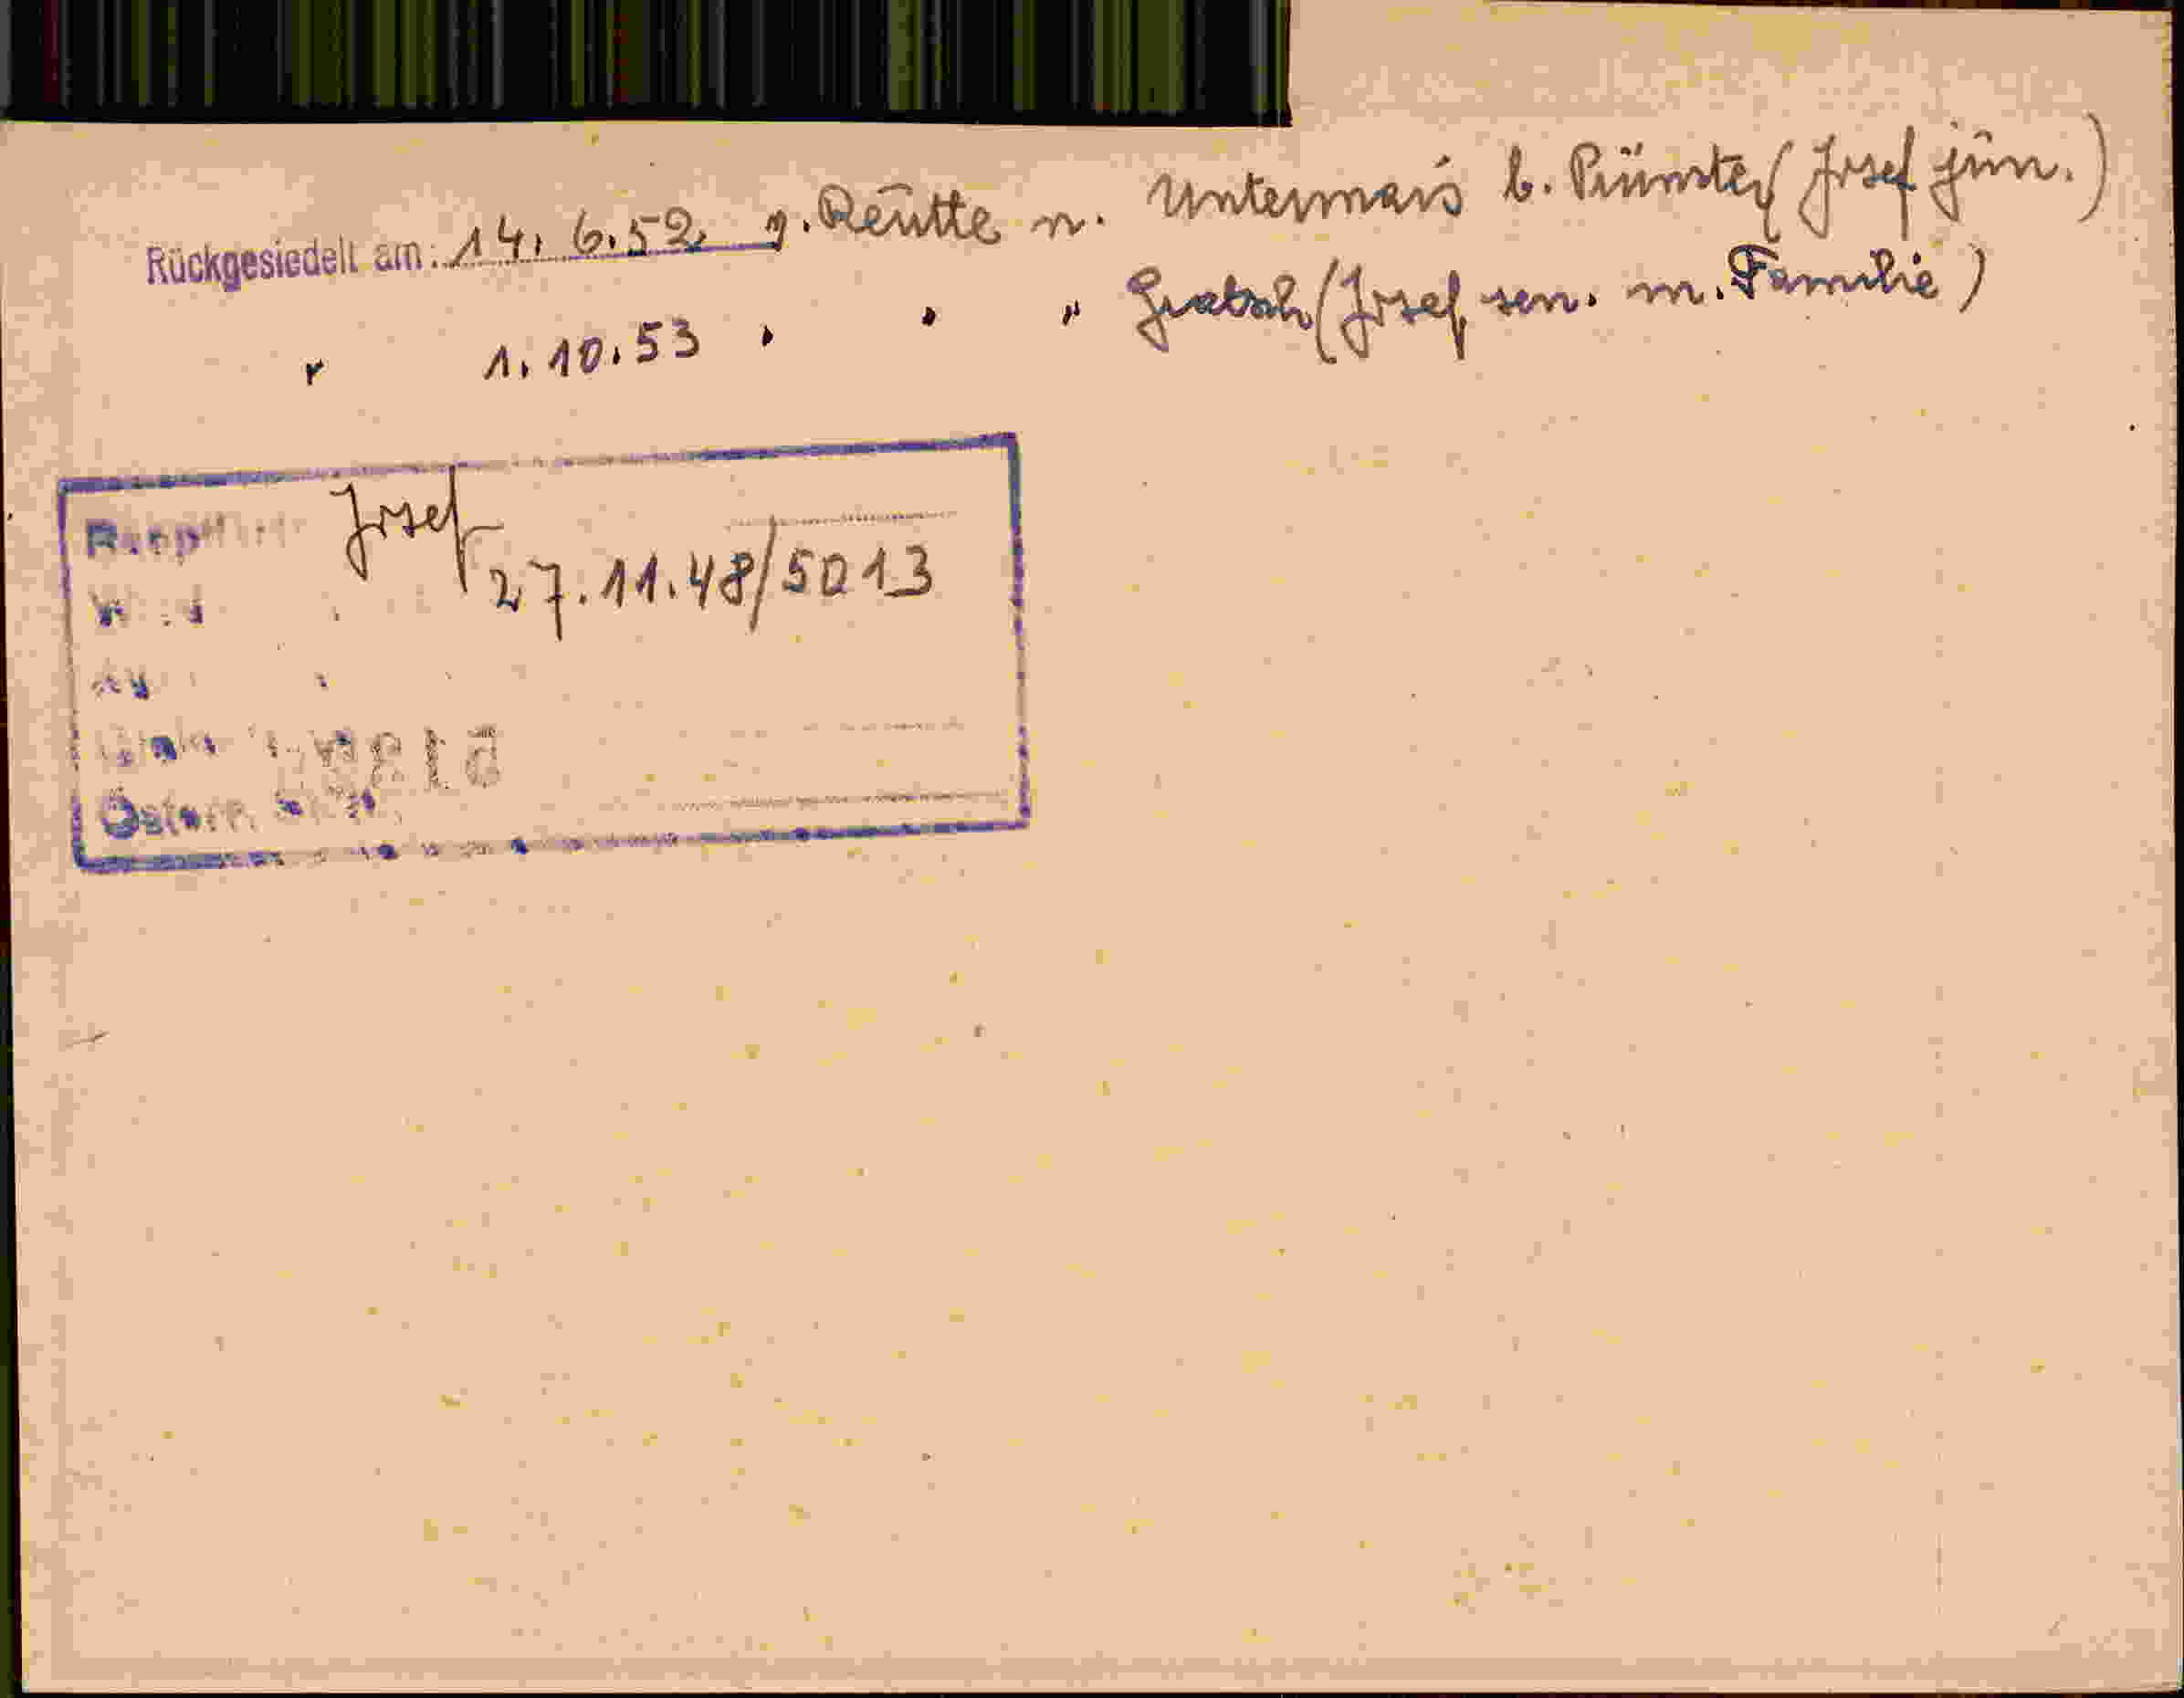 Rückgesiedelt am: 14. 6. 52 v. Reutte n. Untermais b. Pünster (Josef jun.)
" 1. 10. 53 " " " Gratsch (Josef sen. m. Familie)
Josef
27.11.48/5013
Österr.